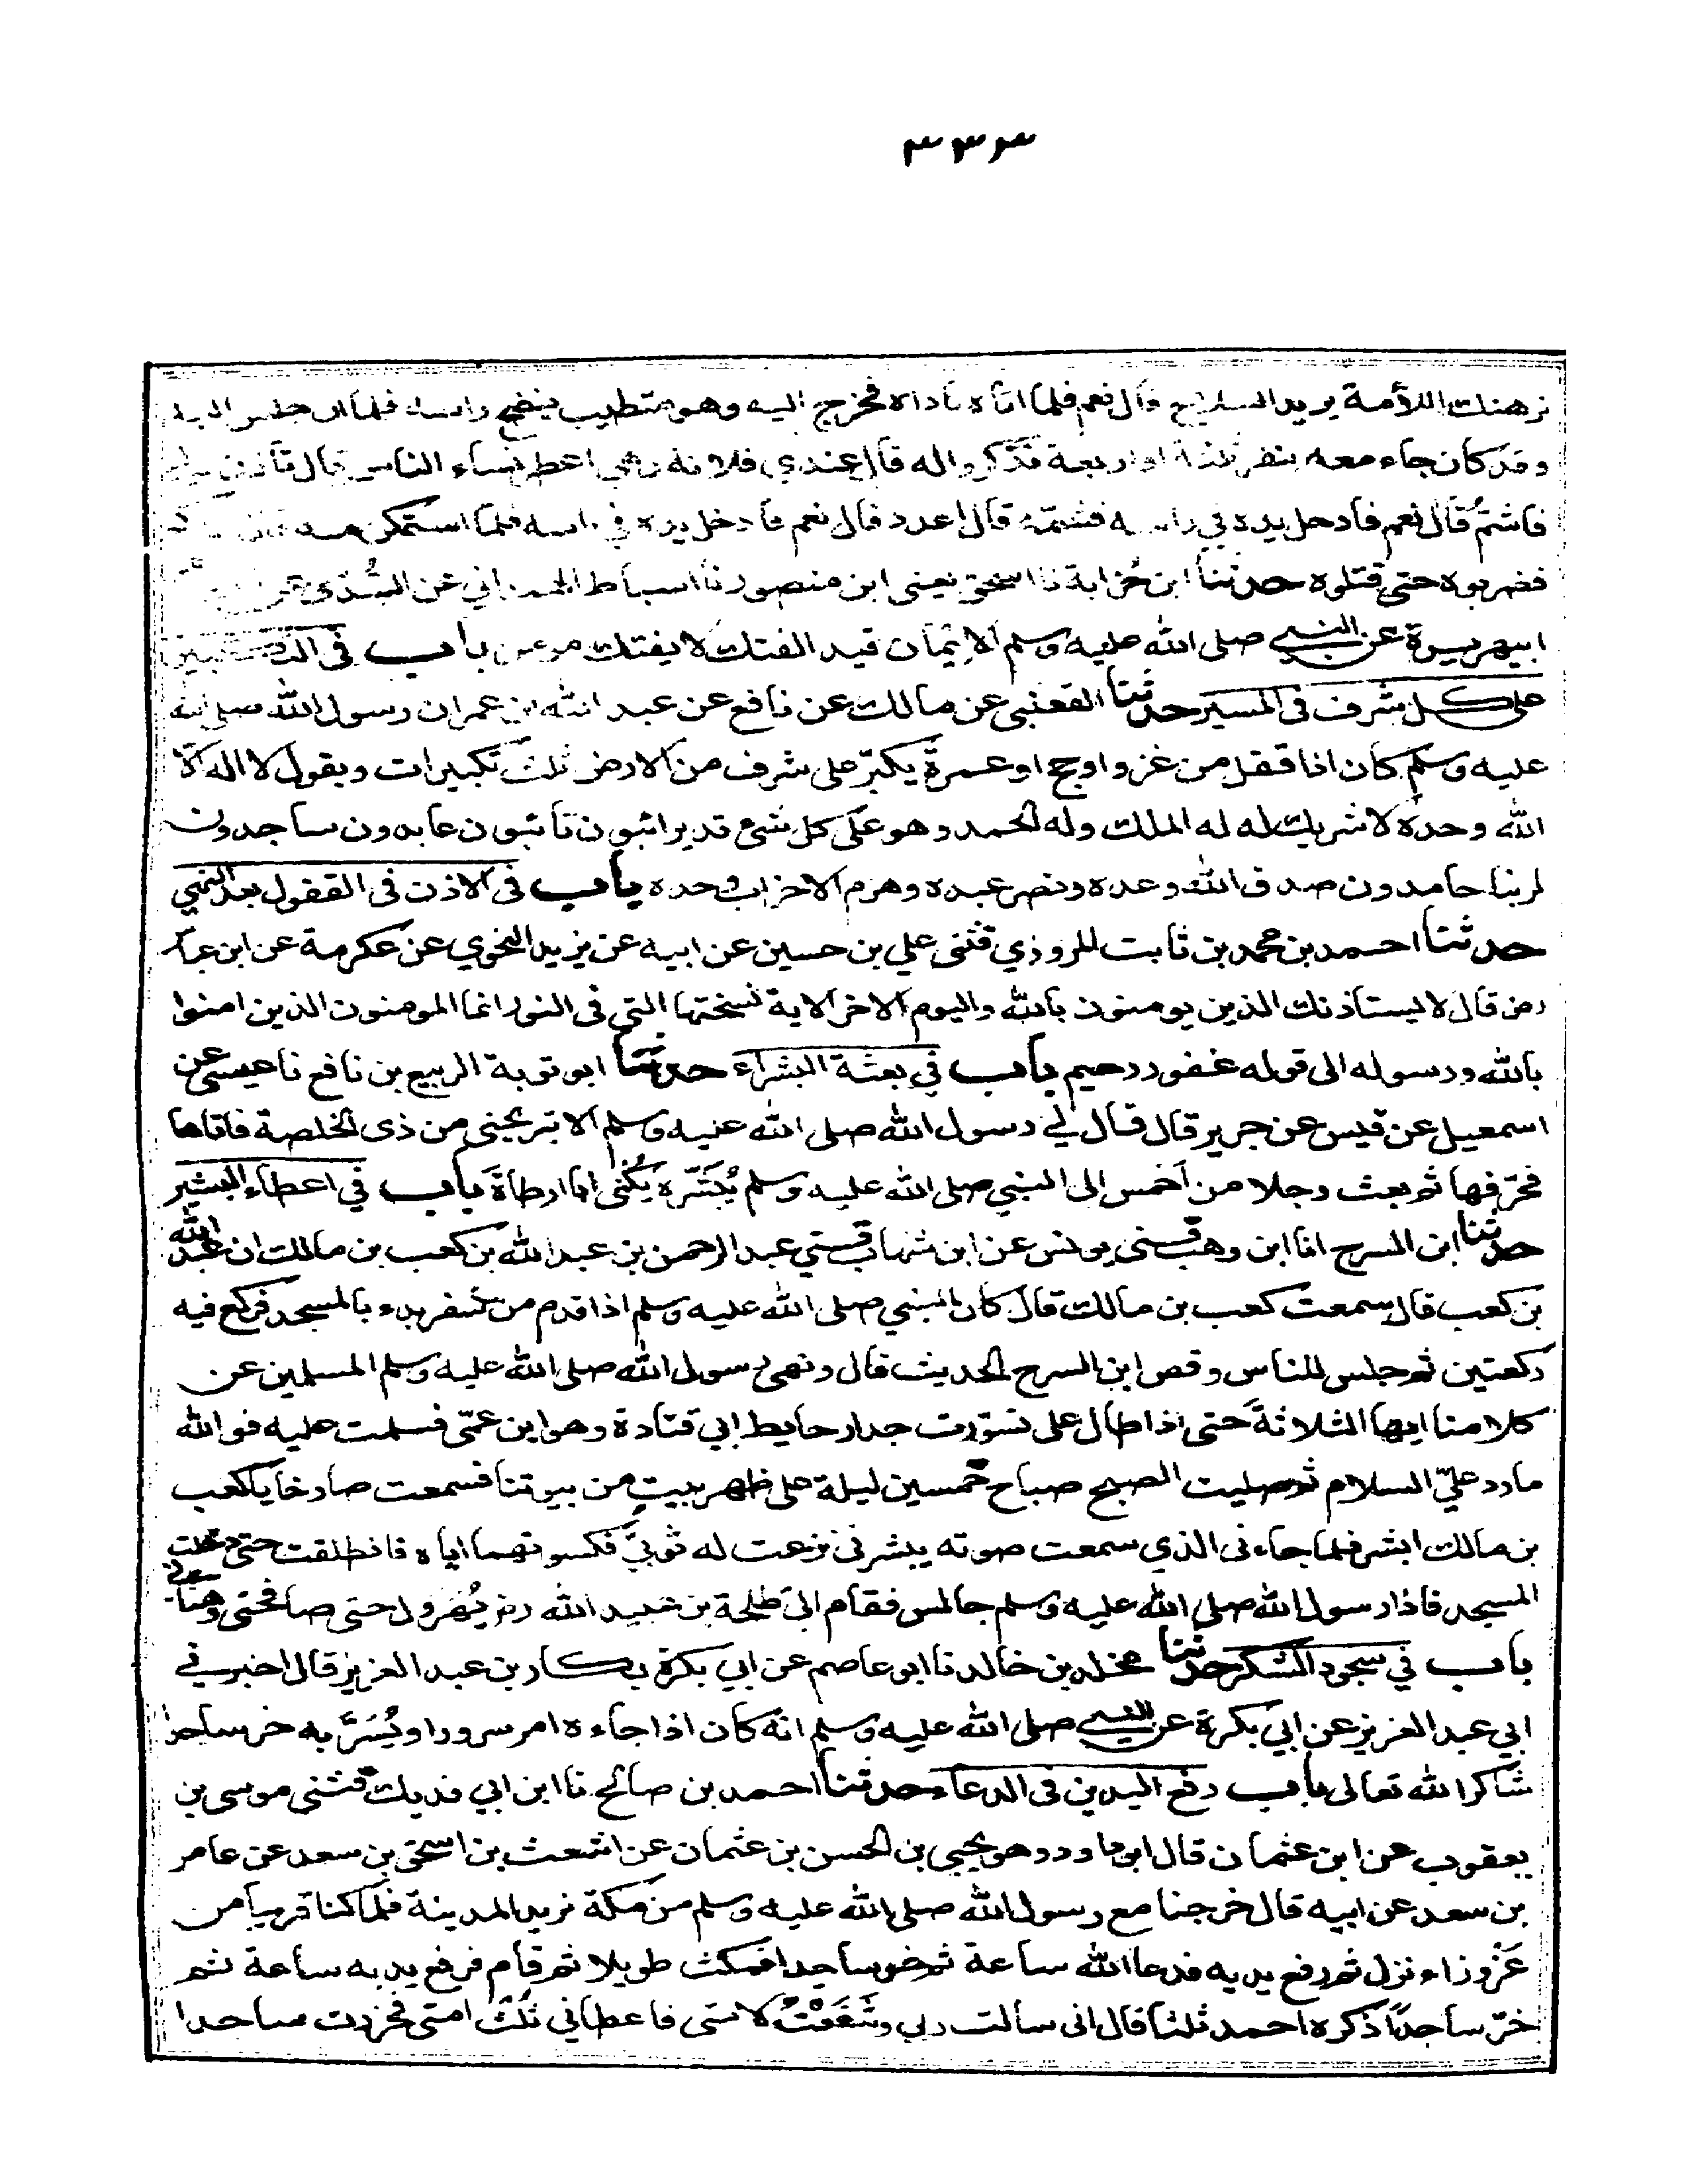 ٣٣٣
نرهنك اللأمة يريد السلاح قال نعم فلما اتاه ناداه فخرج اليه وهو متطيب ينضح راسه فلما ان جلس اليه
وقد كان جاء معه بنفر ثلثة او اربعة فذكروا له قال عندي فلانة وهي اعطر نساء الناس قال تأذن لي
فاشتم قال نعم فادخل يده في راسه فشمّه قال اعود قال نعم فادخل يده في راسه فلما استمكن منه
فضربوه حتى قتلوه حدثنا ابن حُزابة نا اسحق يعنى ابن منصور نا اسباط الهمداني عن السُّدّي عن
ابيهريرة عن النبي صلى الله عليه وسلم الايمان قيد الفتك لا يفتك مومن باب في التكبير
على كل شرف فى المسير حدثنا القعنبي عن مالك عن نافع عن عبد الله بن عمر ان رسول الله صلى الله
عليه وسلم كان اذا قفل من غزو او حج او عمرة يكبّر على شرف من الارض ثلث تكبيرات ويقول لا اله الا
الله وحده لا شريك له له الملك وله الحمد وهو على كل شئ قدير ائبون تائبون عابدون ساجدون
لربنا حامدون صدق الله وعده ونصر عبده وهزم الاحزاب وحده باب فى الاذن فى القفول بعد النهي
حدثنا احمد بن محمد بن ثابت المروذي قثنى علي بن حسين عن ابيه عن يزيد النحوي عن عكرمة عن ابن عباس
رض قال لا يستاذنك الذين يومنون بالله واليوم الاخر الاية نسختها التي فى النور انما المومنون الذين امنوا
بالله ورسوله الى قوله غفور رحيم باب في بعثة البشراء حدثنا ابو توبة الربيع بن نافع نا عيسى عن
اسمعيل عن قيس عن جرير قال قال لي رسول الله صلى الله عليه وسلم الا تريحنى من ذى الخلصة فاتاها
فحرّقها ثم بعث رجلا من احمس الى النبي صلى الله عليه وسلم يُبَشّره يُكْنَى ابا ارطاة باب في اعطاء البشير
حدثنا ابن السرح انا ابن وهب قثنى يونس عن ابن شهاب قثني عبد الرحمن بن عبد الله بن كعب بن مالك ان عبد الله
بن كعب قال سمعت كعب بن مالك قال كان النبي صلى الله عليه وسلم اذا قدم من سفر بدء بالمسجد فركع فيه
ركعتين ثم جلس للناس وقص ابن السرح الحديث قال ونهى رسول الله صلى الله عليه وسلم المسلمين عن
كلامنا ايها الثلاثة حتى اذا طال على تسوّرت جدار حايط ابي قتادة وهو ابن عمّى فسلمت عليه فوالله
مارد عليّ السلام ثم صليت الصبح صباح خمسين ليلة على ظهر بيتٍ من بيوتنا فسمعت صارخا يا كعب
بن مالك ابشر فلما جاءنى الذي سمعت صوته يبشرنى نزعت له ثوبيّ فكسوتهما اياه فانطلقت حتى دخلت
المسجد فاذا رسول الله صلى الله عليه وسلم جالس فقام الىّ طلحة بن عبيد الله رض يُهَرول حتى صافحنى وهنأنى
باب في سجود الشكر حدثنا مخلد بن خالد نا ابو عاصم عن ابي بكرة بكار بن عبد العزيز قال اخبرني
ابي عبد العزيز عن ابي بكرة عن النبي صلى الله عليه وسلم انه كان اذا جاءه امر سرور او يُسَرّ به خر ساجدا
شاكرا لله تعالى باب رفع اليدين فى الدعاء حدثنا احمد بن صالح نا ابن ابي فديك قثنى موسى بن
يعقوب عن ابن عثمان قال ابو داود وهو يحيى بن الحسن بن عثمان عن اشعث بن اسحق بن سعد عن عامر
بن سعد عن ابيه قال خرجنا مع رسول الله صلى الله عليه وسلم من مكة نريد المدينة فلما كنا قريبا من
عَزْوزاء نزل ثم رفع يديه فدعا الله ساعة ثم خر ساجدا فمكث طويلا ثم قام فرفع يديه ساعة ثم
خرّ ساجداً ذكره احمد ثلثا قال انى سالت ربي وشَفَعْتُ لامتى فاعطاني ثُلُثَ امتى فخررت ساجدا